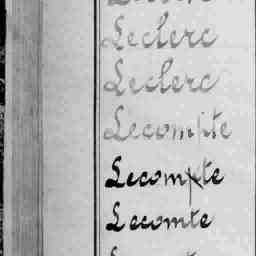 Leclerc
Leclerc
Lecompte
Lecompte
Lecomte